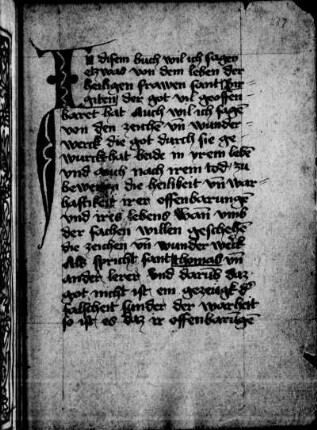 In disem buch wil ich sagen
etzwas von dem leben der
heiligen frawen sant bir
giten der got vil geoffen
baret hat Auch wil ich sagē
von den zeichē vn̄ wunder
werck die got durch sie ge
wurckt hat beide in yrem lebē
vnd auch nach irem tod zu
bewe die heilikeit vn̄ war
haftikeit irer offenbarunge
vnd irēs lebens wan̄ vmb
der sachen willen geschehē
die zeichen vn̄ wunder werck
Als spricht sant thomas vn̄
ander lerer vnd darūb daz
got nicht ist ein gezeugk dˢ
falscheit sunder der warheit
so ist es daz ir offenbarūgē